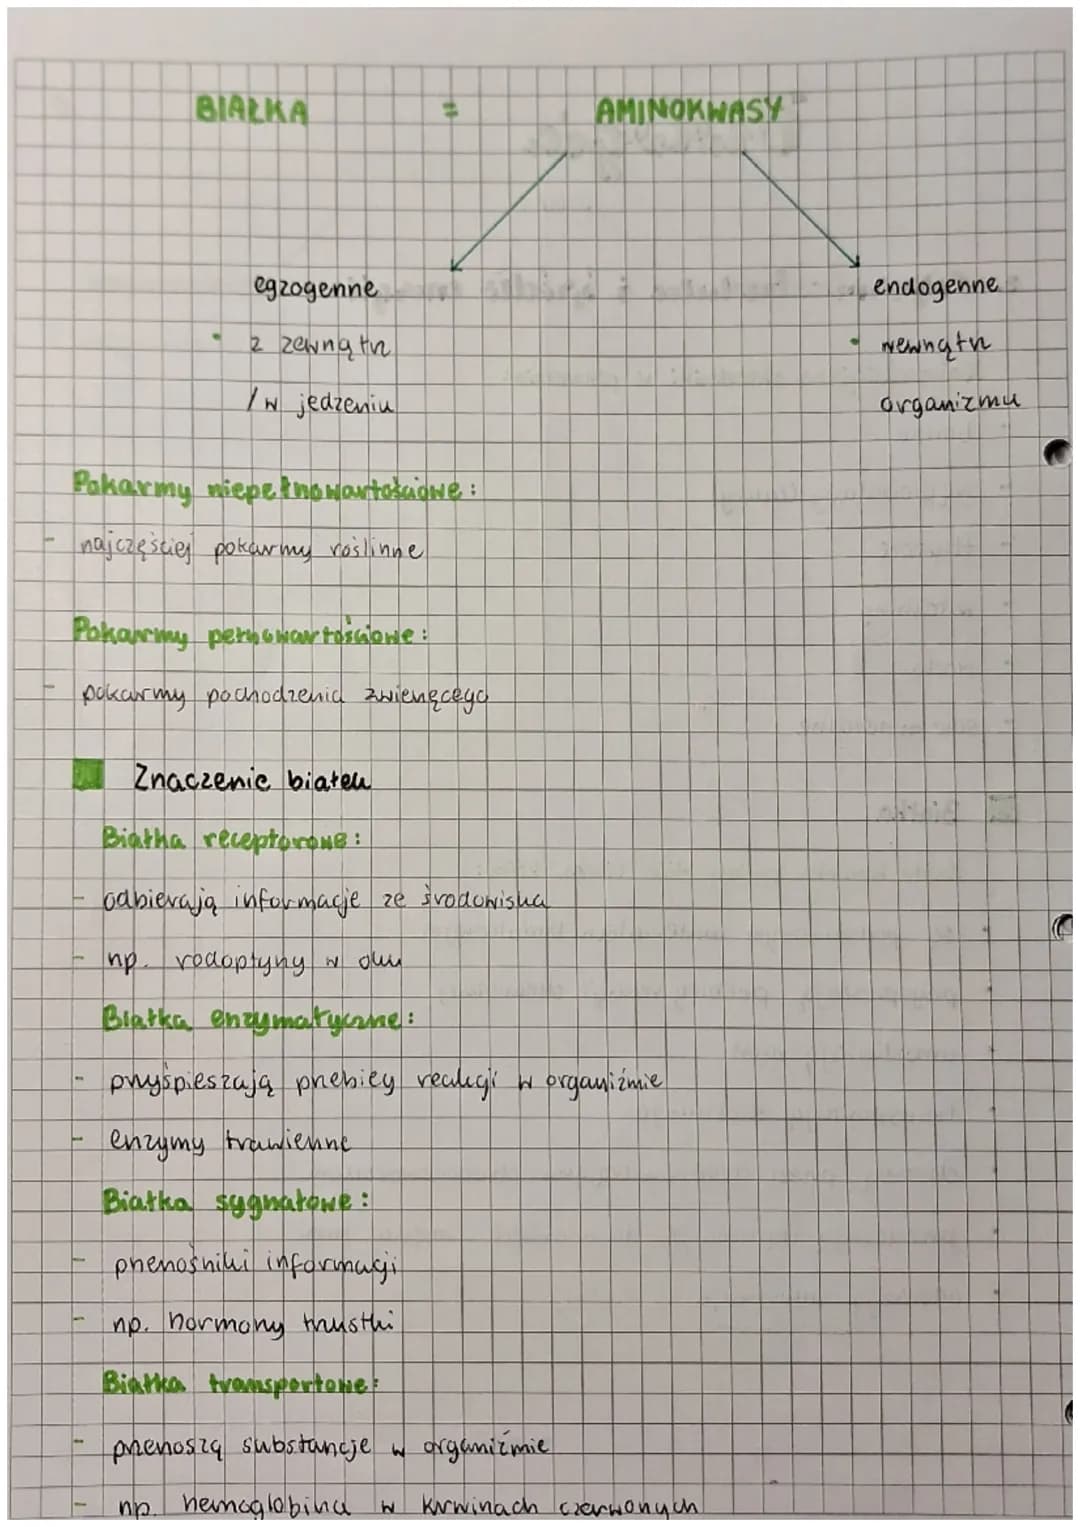 BIAŁKA = AMINOKWASY
egzogenne endogenne
• z zewnątrz • wewnątrz
/w jedzeniu organizmu
Pokarmy niepełnowartościowe:
- najczęściej pokarmy roślinne
Pokarmy pełnowartościowe:
- pokarmy pochodzenia zwierzęcego
Znaczenie białek
Białka receptorowe:
- odbierają informacje ze środowiska
- np. rodopsyny w oku
Białka enzymatyczne:
- przyśpieszają przebiegy reakcji w organiźmie
- enzymy trawienne
Białka sygnałowe:
- przenośniki informacji
- np. hormony trzustki
Białka transportowe:
- przenoszą substancje w organiźmie
- np. hemoglobina w krwinach czerwonych